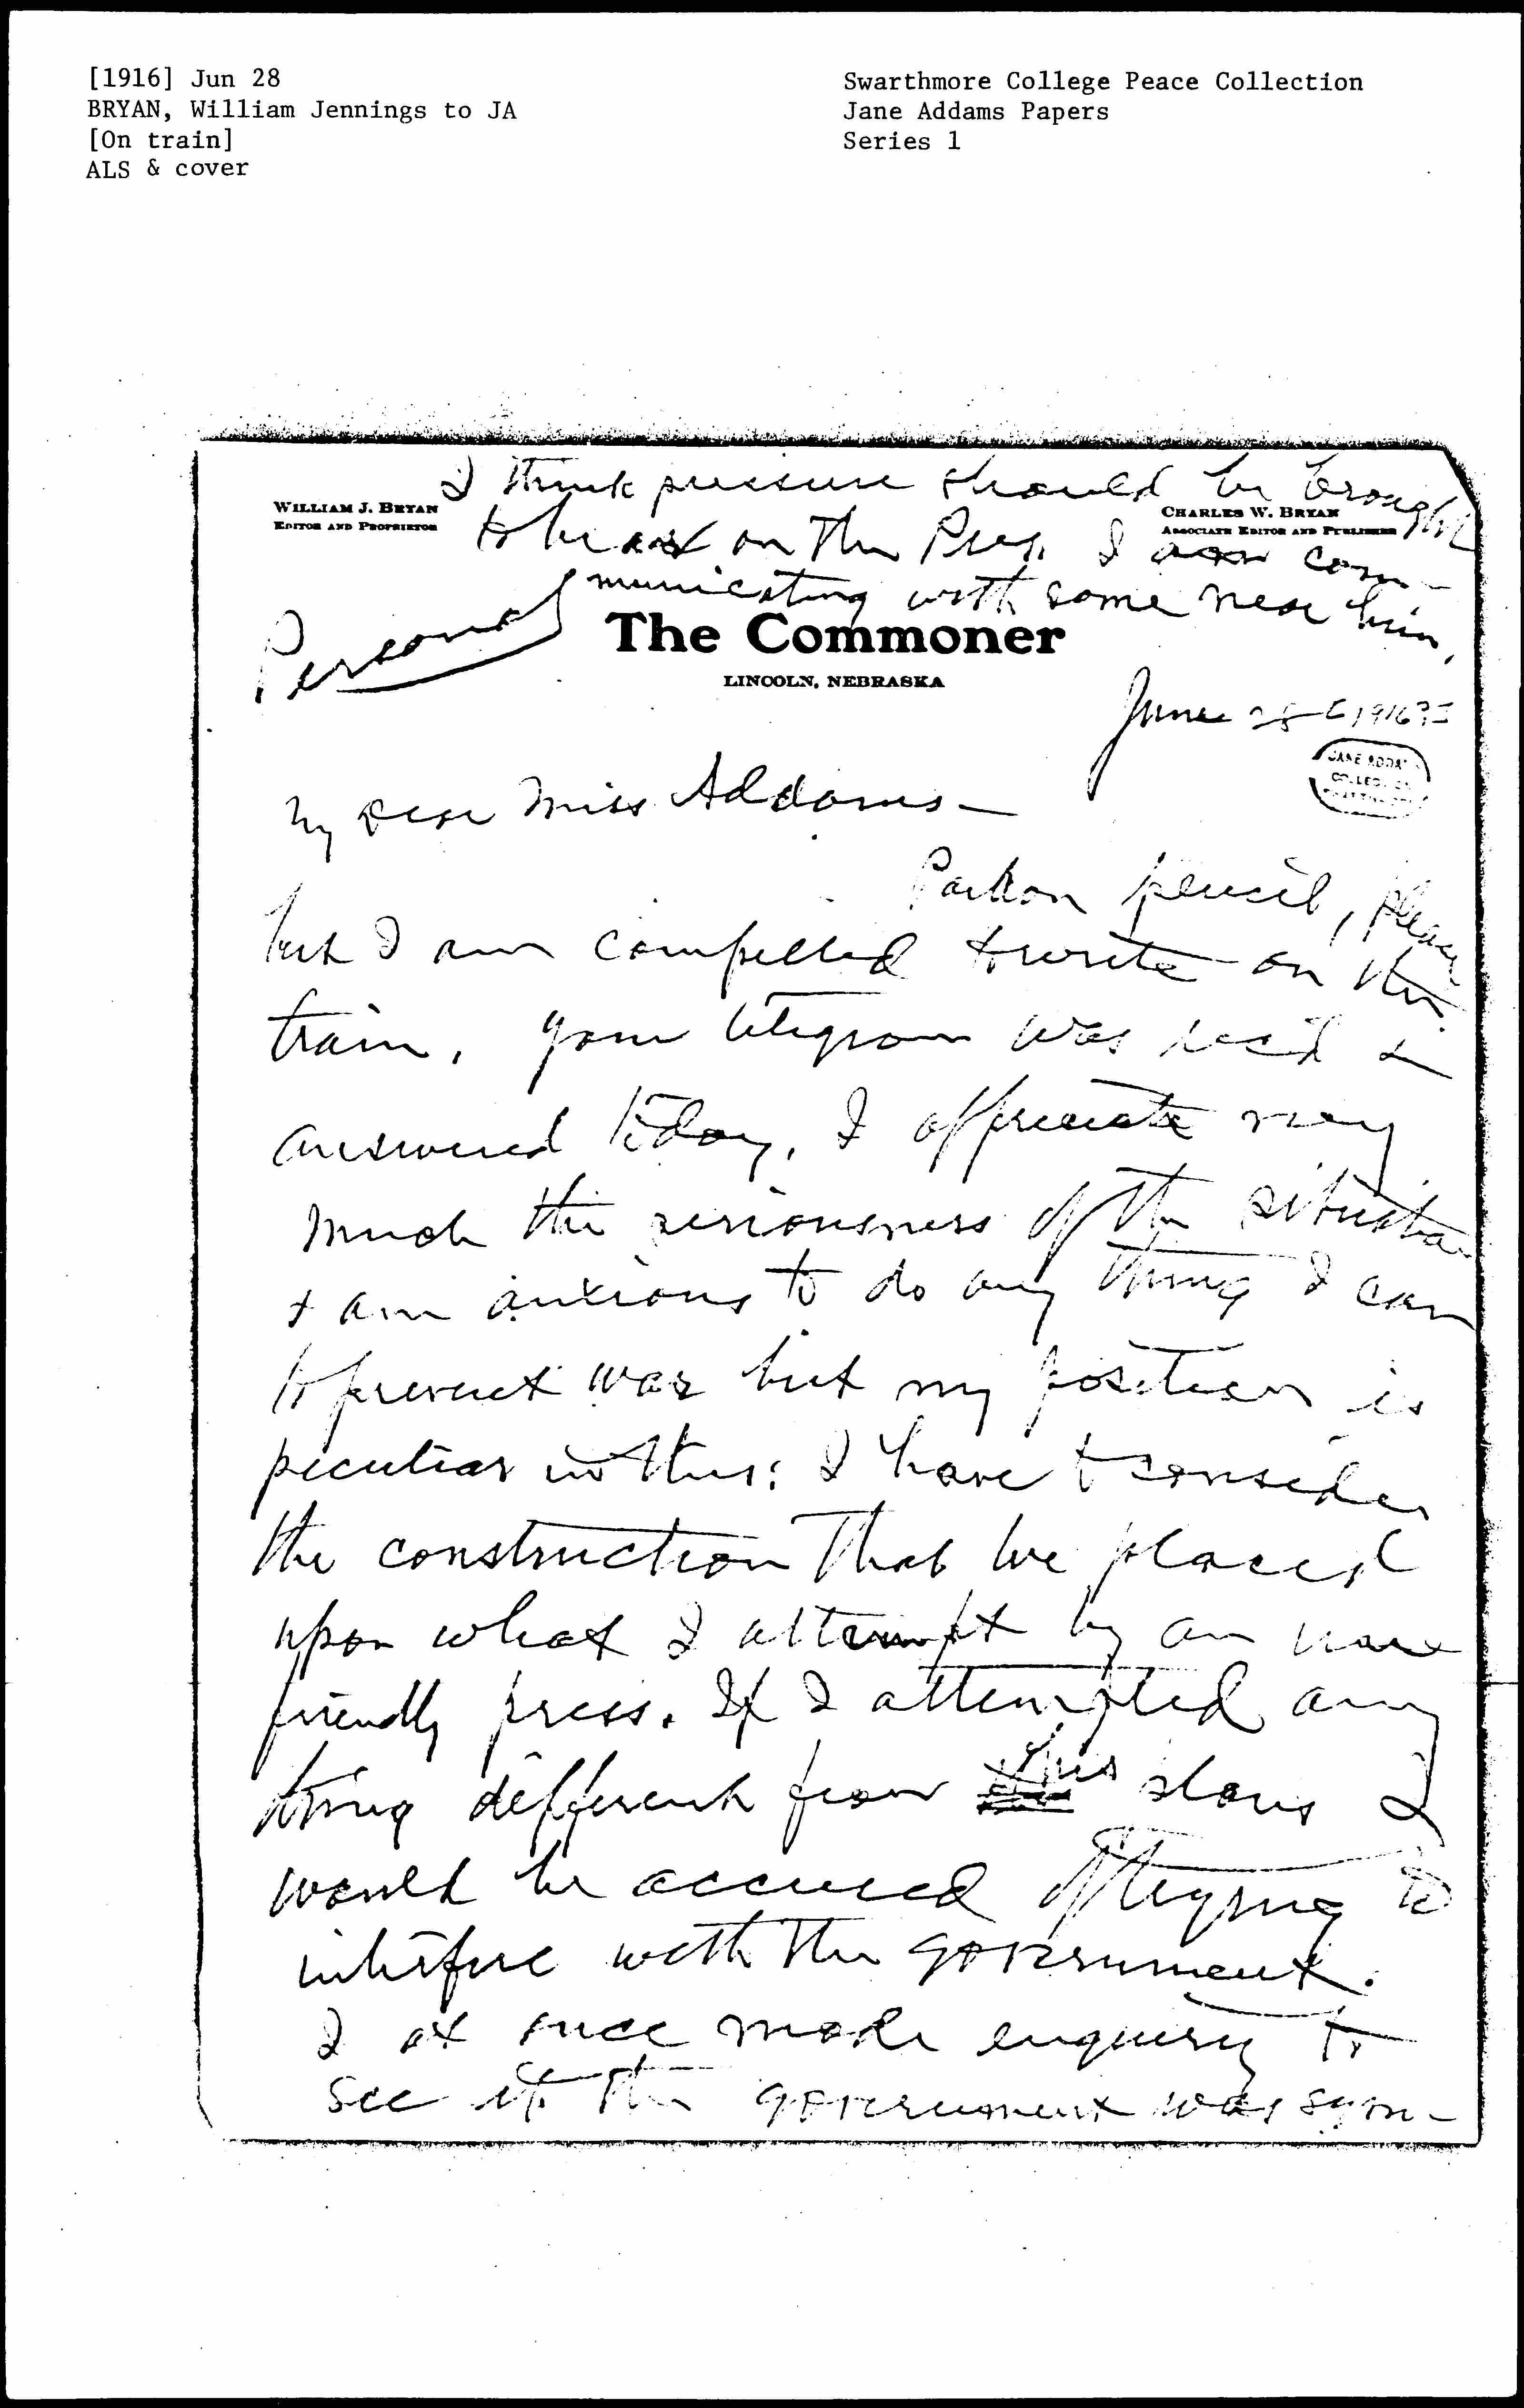 [1916] Jun 28
BRYAN, William Jennings to JA
[On train]
ALS & cover
Swarthmore College Peace Collection
Jane Addams Papers
Series 1
I think pressure should be brought
to bear on the Pres. I am com-
municating with some near him.
WILLIAM J. BRYAN
EDITOR AND PROPRIETOR
CHARLES W. BRYAN
ASSOCIATE EDITOR AND PUBLISHER
Personal
The Commoner
LINCOLN, NEBRASKA
June 28 [1916?]
JANE ADDAMS
My Dear Miss Addams—
Pardon pencil, please
but I am compelled to write on the
train. Your telegram was rec'd &
answered today. I appreciate very
much the seriousness of the situation
& am anxious to do any thing I can
to prevent war but my position is
peculiar in this: I have to consider
the construction that be placed
upon what I attempt by an
friendly press. If I attempted any
thing different from this plans I
would be accused of trying to
interfere with the government.
I at once made enquiry to
see if the government was sym-